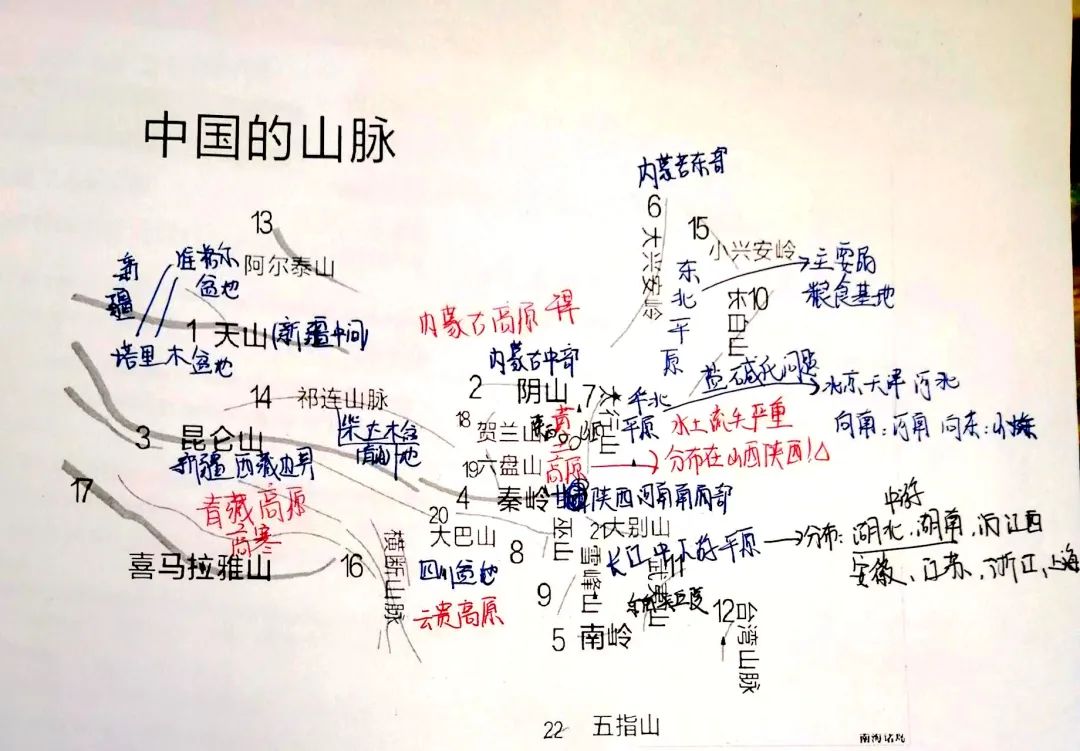 中国的山脉
内蒙古东部
6 大兴安岭
13
阿尔泰山
15
小兴安岭
主要的
粮食基地
新疆
准噶尔
盆地
东北平原
10
长白山
1 天山 (新疆中间)
塔里木盆地
内蒙古高原
内蒙古中部
盐碱化问题
北京天津河北
向南:河南 向东:山东
14 祁连山脉
柴达木盆地
2 阴山
7 太行山
华北
平原
水土流失严重
分布在山西陕西
18 贺兰山
19 六盘山
黄土
高原
3 昆仑山
新疆西藏边界
4 秦岭
陕西河南南部
17
青藏高原
高寒
20
大巴山
8
巫山
21 大别山
长江中下游平原
分布:
中游
湖北、湖南、江西
安徽、江苏、浙江、上海
喜马拉雅山
16
横断山脉
四川盆地
云贵高原
9
雪峰山
11
武夷山
东南丘陵
5 南岭
12
台湾山脉
22 五指山
南海诸岛